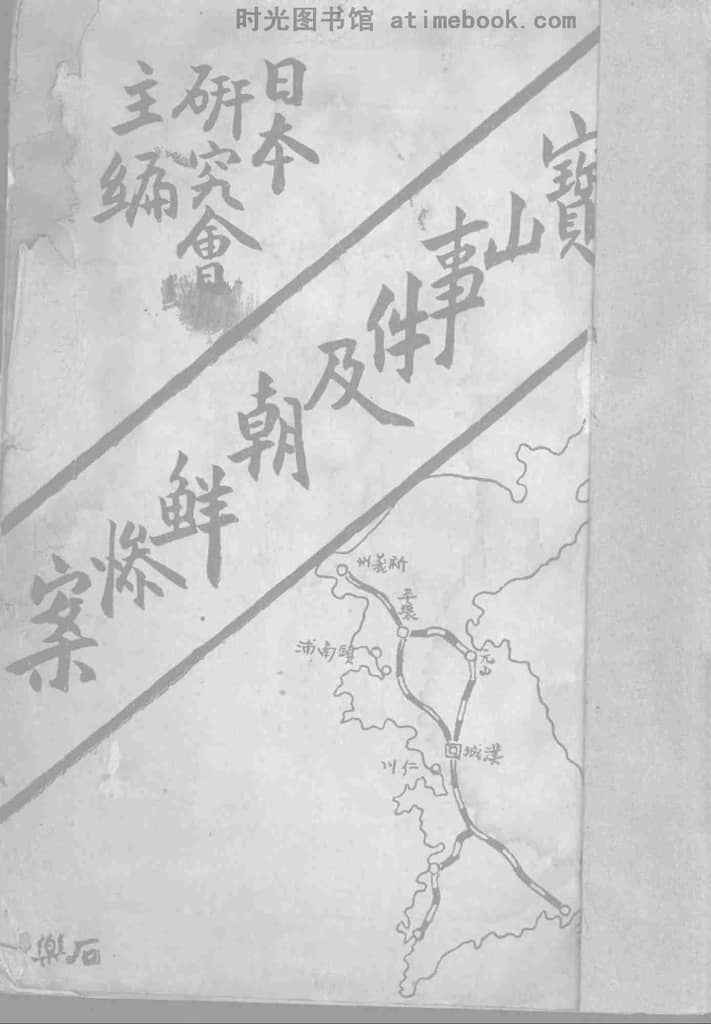 时光图书馆 atimebook.com
日本
研究會
主編
寶山事件及朝鮮慘案
州義新
平壤
元山
浦南鎮
城漢
川仁
樂石